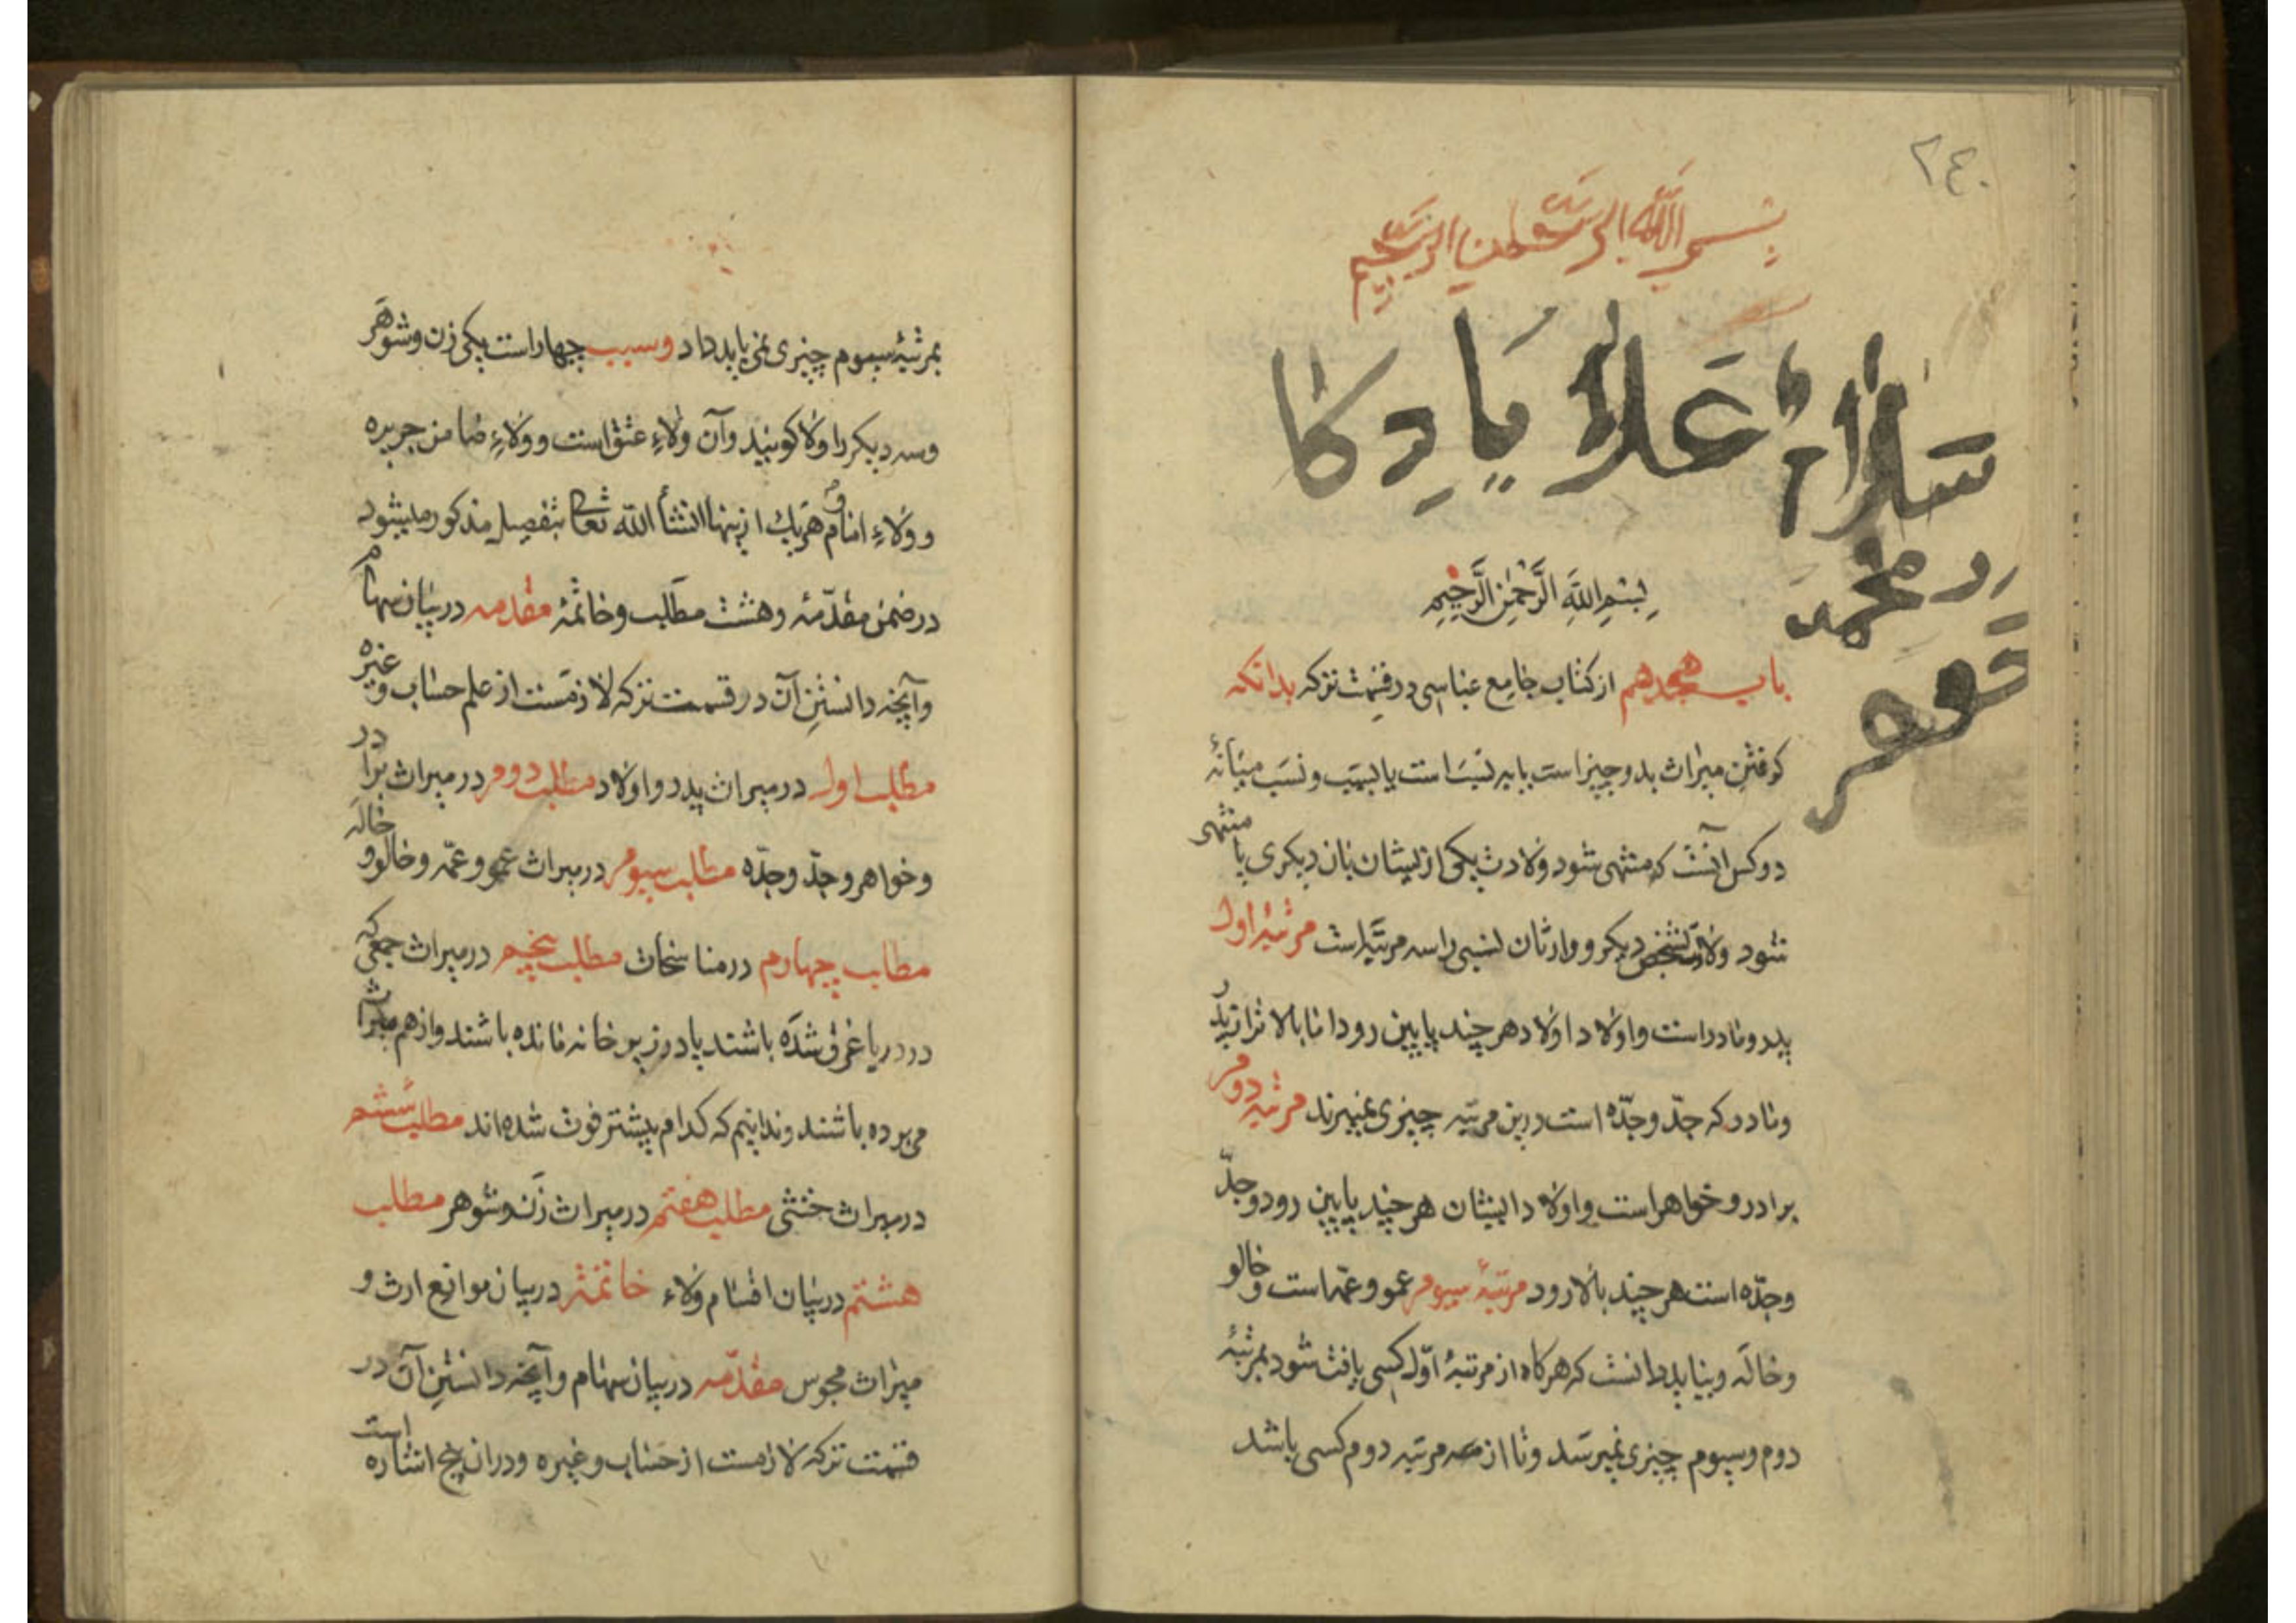 ٢٤٠
بسم الله الرحمن الرحيم
يادكا
محمد
بِسْمِ اللَّهِ الرَّحْمٰنِ الرَّحِيمِ
باب هجدهم از كتاب جامع عباسى در قسمت تركه بدانكه
كرفتن ميراث بدو چيز است يا به نسب است يا بسبب و نسب ميانهٔ
دو كس آنست كه منتهى شود ولادت يكى از ايشان بان ديكرى يا منتهى
شود ولادت شخص ديكر و وارثان نسبى را سه مرتبه است مرتبهٔ اول
پدر و مادر است و اولاد اولاد هر چند پايين رود اما بالاتر از پدر
و مادر كه جدّ و جدّه است درين مرتبه چيزى نميبرند مرتبه دوم
برادر و خواهر است و اولاد ايشان هر چند پايين رود و جدّ
و جدّه است هر چند بالا رود مرتبهٔ سيوم عمو و عمّه است و خالو
و خاله و ببايد دانست كه هركاه از مرتبهٔ اوّل كسى يافت شود بمرتبهٔ
دوم و سيوم چيزى نميرسد و تا از مرتبه دوم كسى باشد
بمرتبهٔ سيوم چيزى نمى بايد داد و سبب چهار است يكى زن و شوهر
و سه ديكر را ولا كويند و آن ولاءِ عتق است و ولاءِ ضامن جريره
و ولاءِ امام و هر يك از ينها انشأ الله تعالى بتفصيل مذكور ميشود
در ضمن مقدّمهٔ و هشت مطلب و خاتمهٔ مقدمه در بيان سهام
و آنچه دانستن آن در قسمت تركه لازمست از علم حساب و غيره
مطلب اول در ميراث پدر و اولاد مطلب دوم در ميراث برادر
و خواهر و جدّ و جدّه مطلب سيوم در ميراث عمو و عمّه و خالو و خاله
مطلب چهارم در مناسخات مطلب پنجم در ميراث جمعى كه
در دريا غرق شده باشند يا در زير خانه مانده باشند و از هم ميراث
مى برده باشند و ندانيم كه كدام پيشتر فوت شده اند مطلب ششم
در ميراث خنثى مطلب هفتم در ميراث زن و شوهر مطلب
هشتم در بيان اقسام ولاء خاتمه در بيان موانع ارث و
ميراث مجوس مقدّمه در بيان سهام و آنچه دانستن آن در
قسمت تركه لازمست از حساب و غيره و دران پنج اشاره است